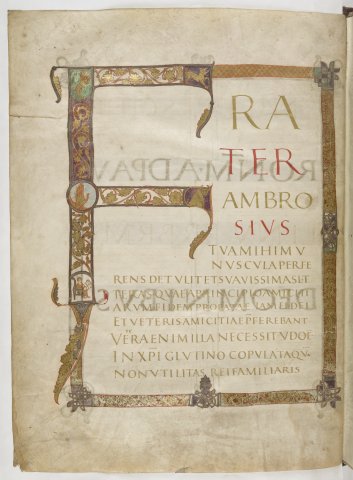 FRA
TER
AMBRO
SIUS
TUAMIHIMU
NUSCULAPERFE
RENS DETULITETSUAVISSIMASLIT
TERASQUAEAPRINCIPIOAMICITI
ARUMFIDEMPROBATAEIAMFIDEI
ETVETERISAMICITIAEPFEREBANT
VERAENIMILLANECESSITUDOE
INXPIGLUTINOCOPULATAQU
NONUTILITAS REIFAMILIARIS